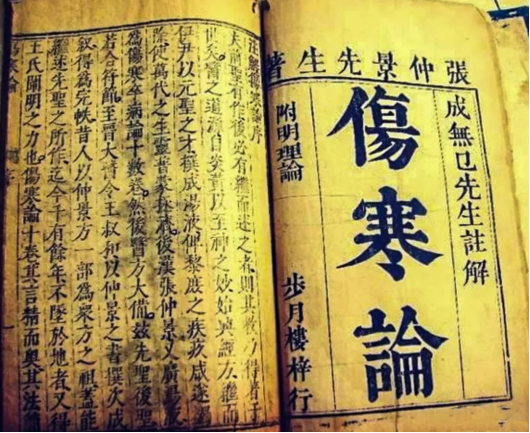 張仲景先生著
成無已先生註解
傷寒論
附明理論
步月樓梓行
註解傷寒論序
夫前聖有作後必有繼而述之者則其教乃得著于
世矣醫之道源自炎黃以至神之妙始興經方繼而
伊尹以元聖之才撰成湯液俾黎庶之疾疢咸遂蠲
除使萬代之生靈普蒙拯濟後漢張仲景又廣湯液
為傷寒卒病論十數卷然後醫方大備茲先聖後聖
若合符節至晉太醫令王叔和以仲景之書撰次成
敘得為完帙昔人以仲景方一部為衆方之祖蓋能
繼述先聖之所作迄今千有餘年不墜於地者又得
王氏闡明之力也傷寒論十卷其言精而奧其法簡
傷寒論